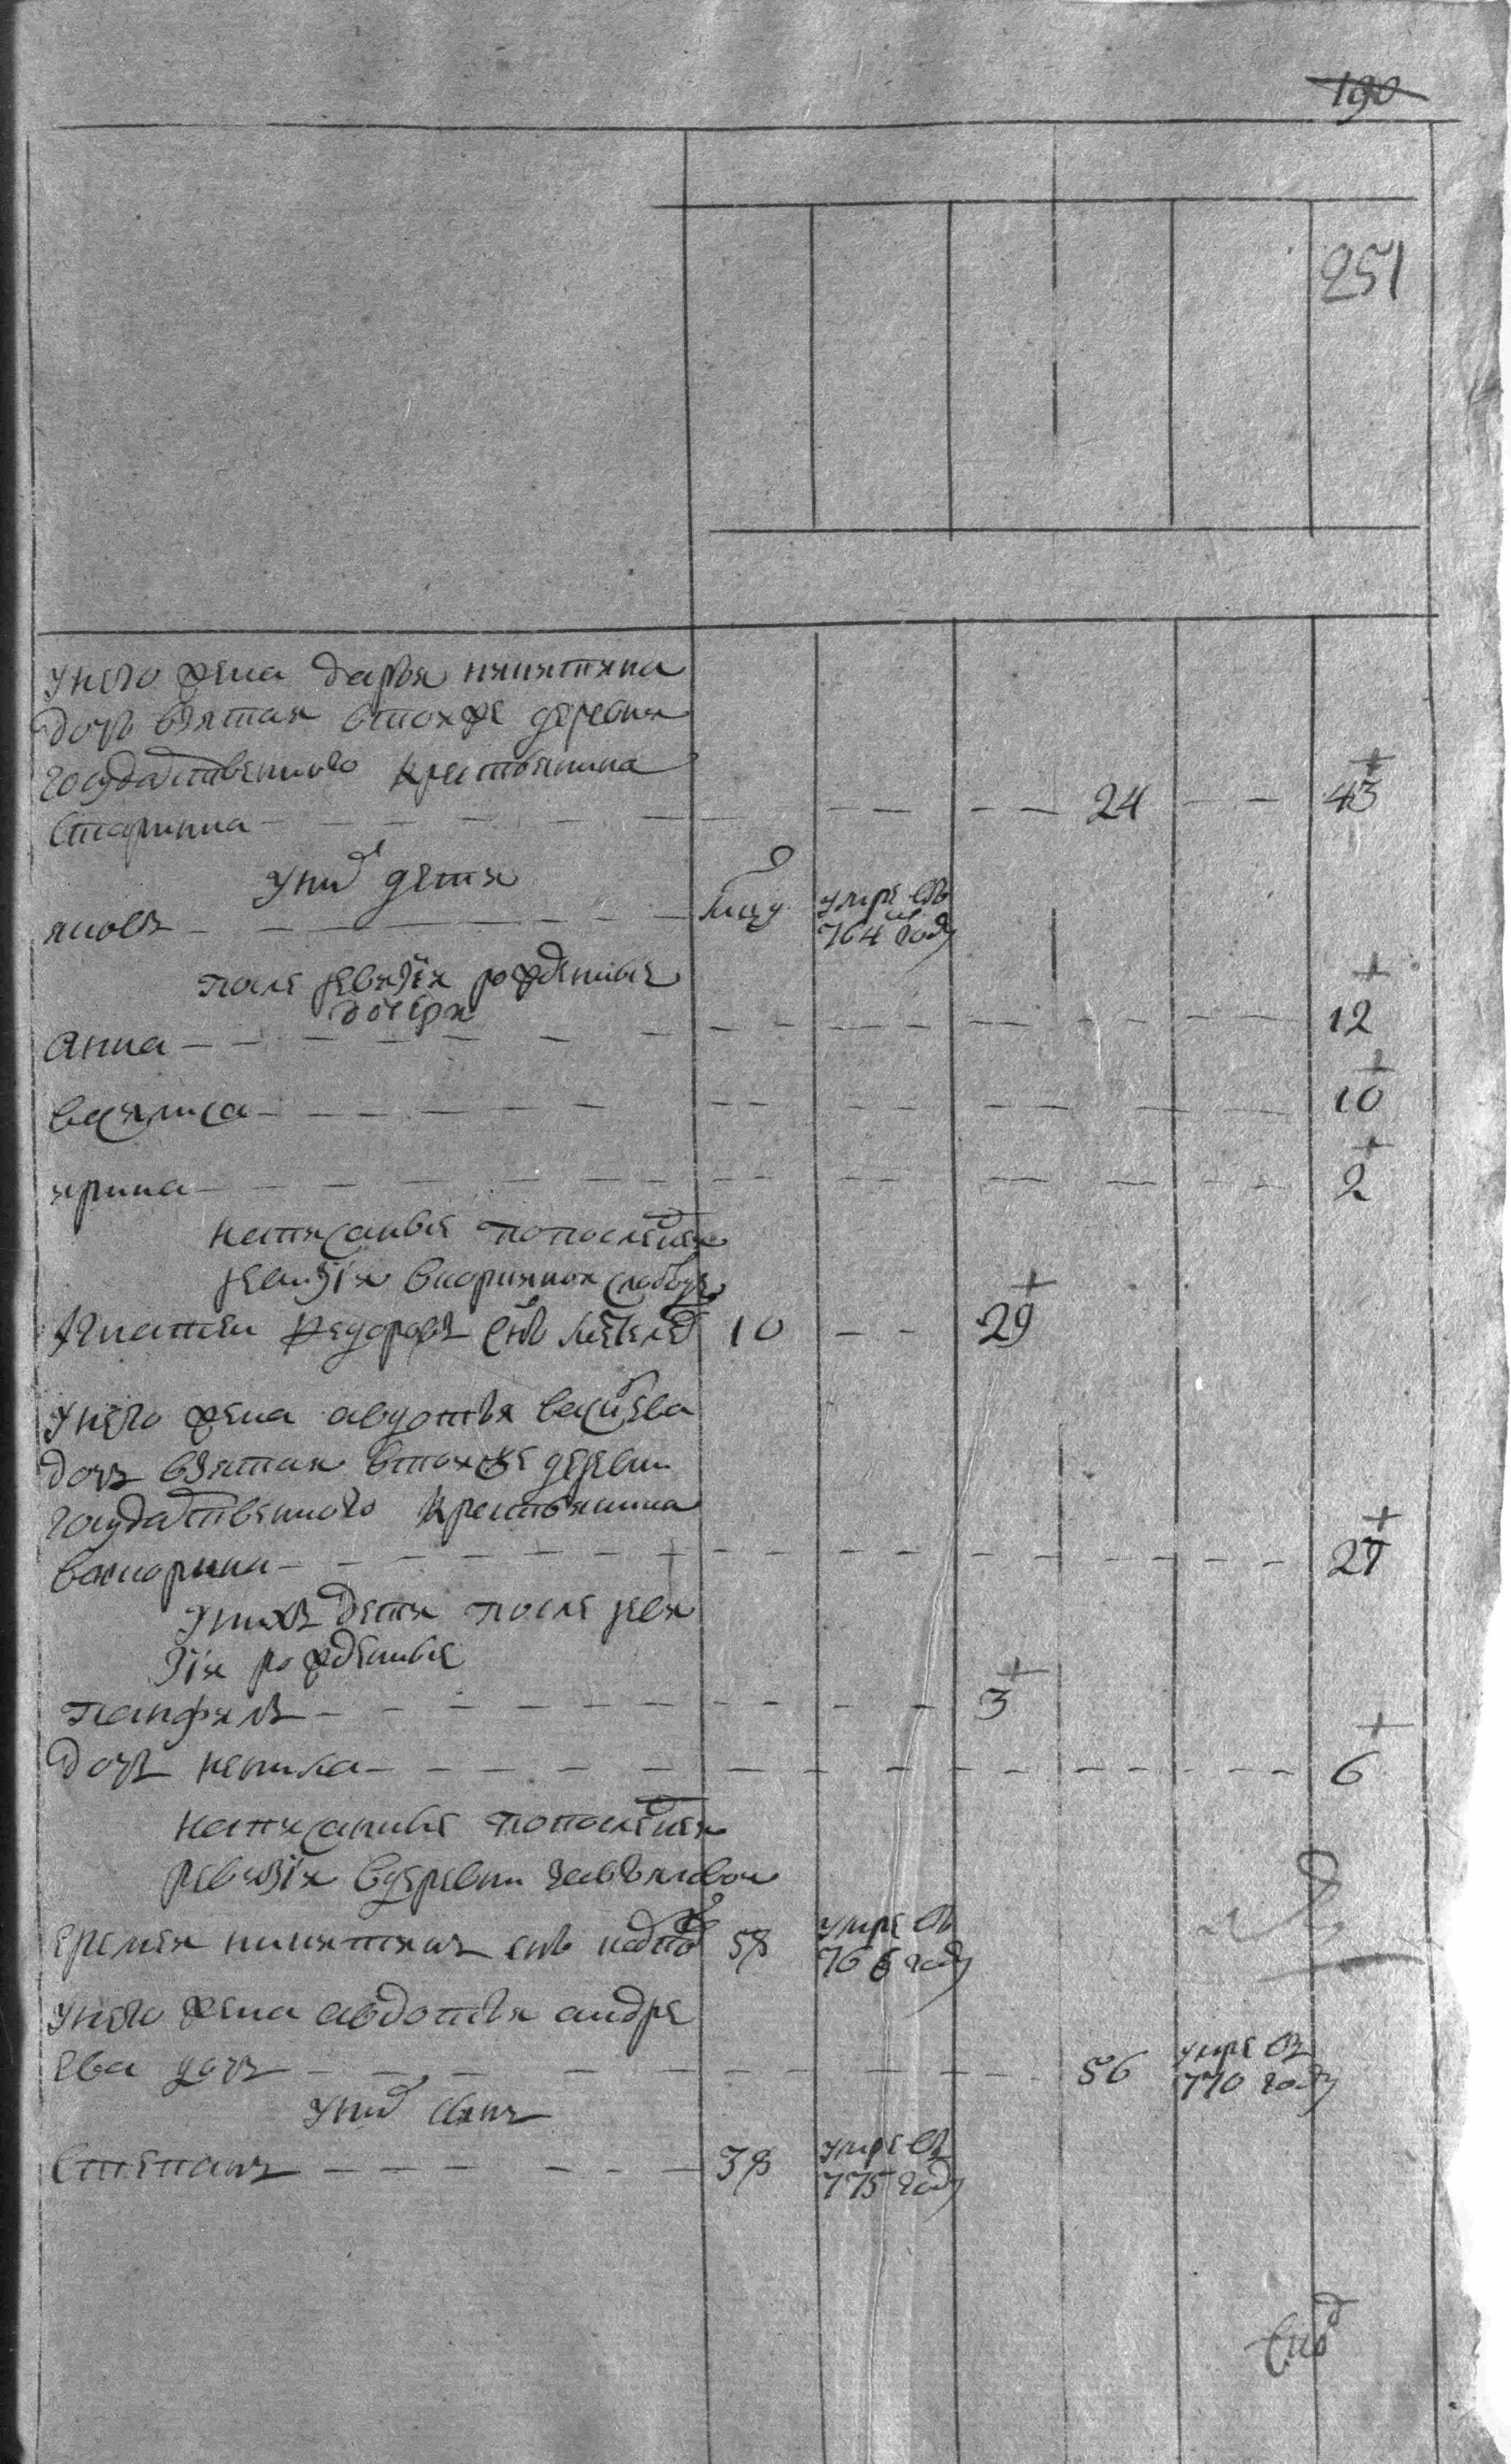 190
251
у него жена дарья никитина
дочь взятая втойже деревни
государственного крестьянина
старинна — — — 24 — 43
у них дети
яковъ — — — умре въ
764 м году
после ревизiи рожденные
дочери
Анна — — — 12
василиса — — — 10
ирина — — — 2
написанные по последней
ревизiи слободе
Игнатей федоровъ снъ 10 — — 29
у него жена авдотья васильева
дочь взятая втойже деревни
государственного крестьянина
— — — 27
у нихъ дети после реви
зiи рожденные
панфилъ — — — 3
дочь ненила — — — 6
написанные по последней
ревизiи вдеревни завьяловой
еремей никитинъ снъ 58 умре въ
766 году
у него жена авдотья андре
ева дочь — — — 56 умре въ
770 году
у них сынъ
Степанъ — — — 38 умре въ
775 году